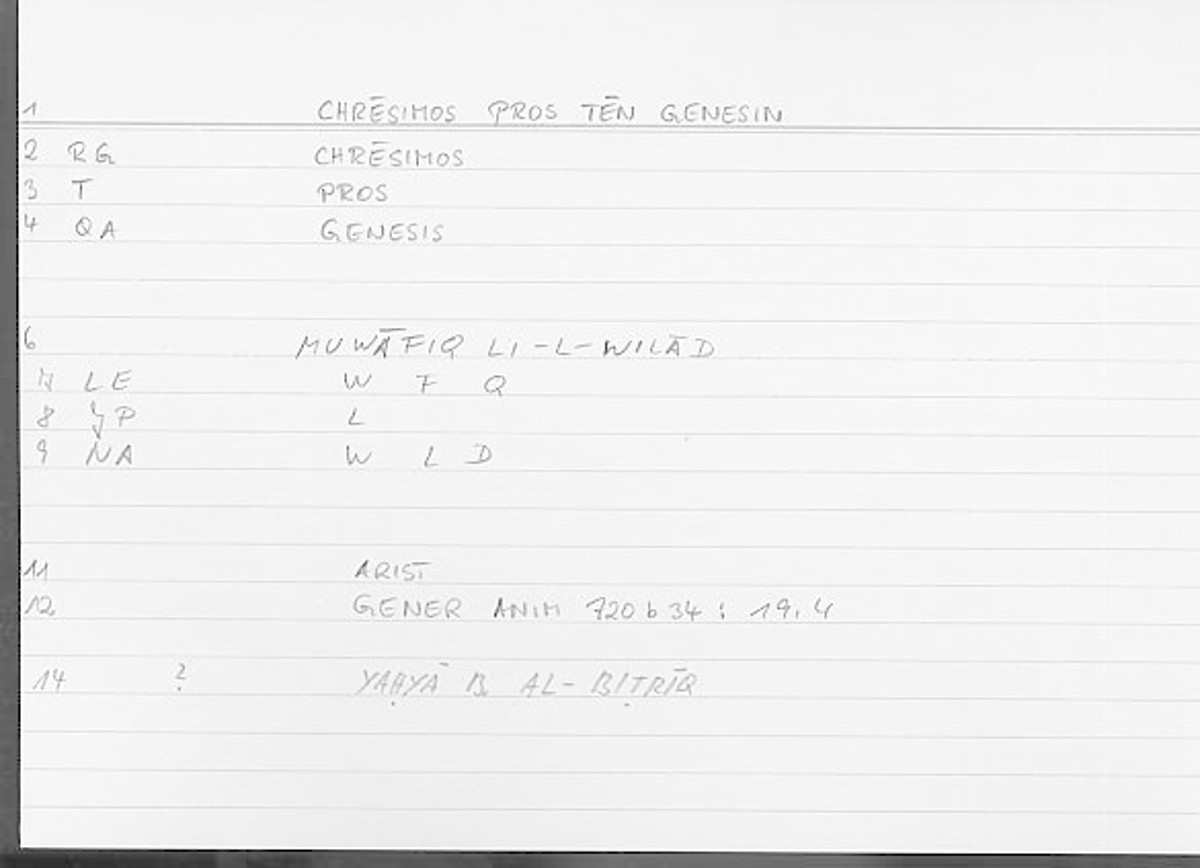 1 CHRĒSIMOS PROS TĒN GENESIN
2 RG CHRĒSIMOS
3 T PROS
4 QA GENESIS
6 MUWĀFIQ LI-L-WILĀD
7 LE W F Q
8 P L
9 NA W L D
11 ARIST
12 GENER ANIM 720 b 34 : 19,4
14 ? YAḤYĀ B. AL-BIṬRĪQ